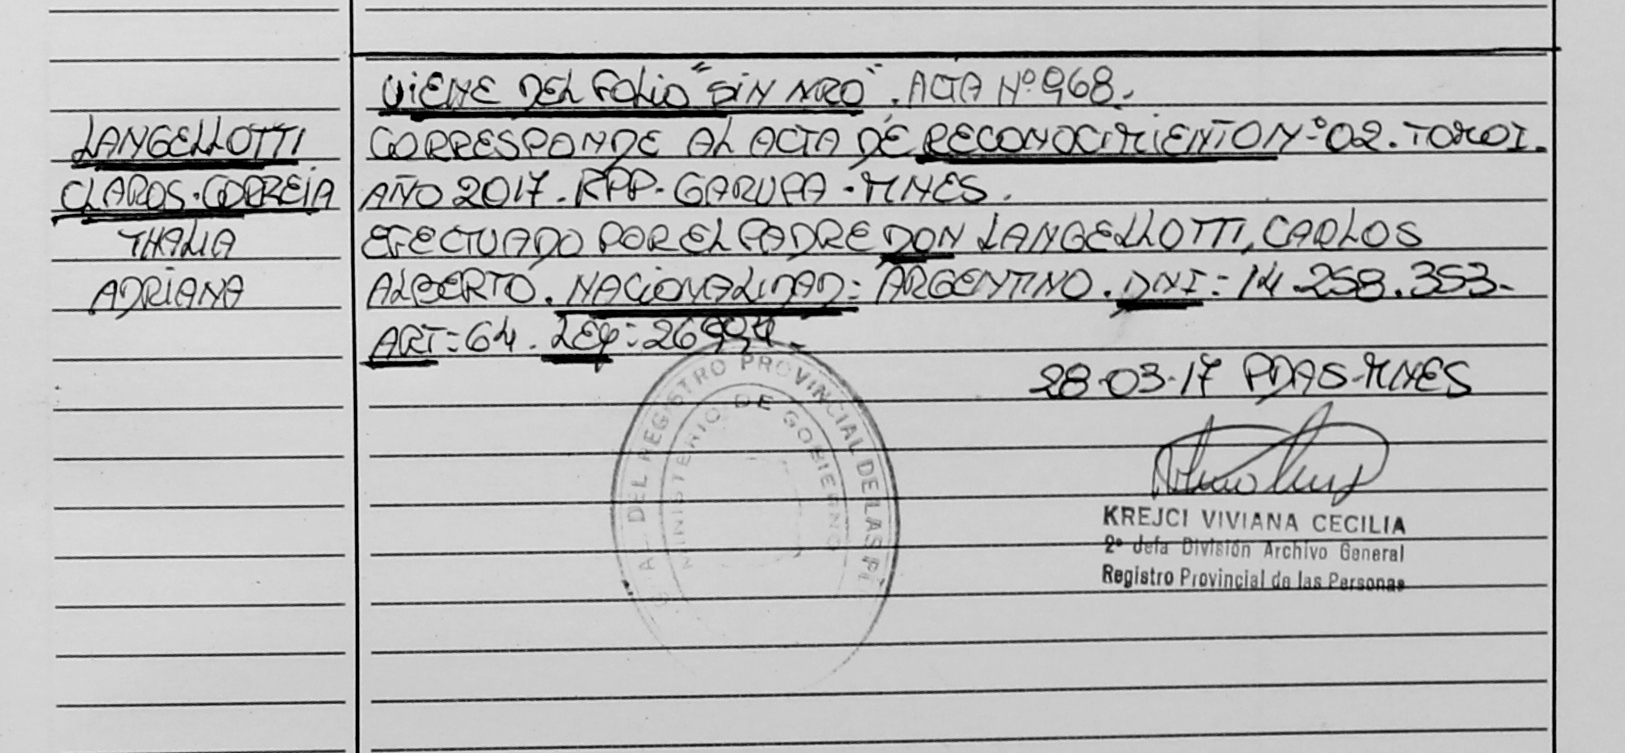 VIENE DEL FOLIO "SIN NRO". ACTA Nº 968.
LANGELLOTTI
CLAROS-CORREIA
THALIA
ADRIANA
CORRESPONDE AL ACTA DE RECONOCIMIENTO Nº 02. TOMO I.
AÑO 2017. RPP-GARUPA-MNES.
EFECTUADO POR EL PADRE DON LANGELLOTTI, CARLOS
ALBERTO. NACIONALIDAD: ARGENTINO. DNI: 14.258.353-
ART: 64. LEY: 26994.
28-03-17 PDAS-MNES
AL DEL REGISTRO PROVINCIAL DE LAS
MINISTERIO DE GOBIERNO
KREJCI VIVIANA CECILIA
2º Jefa División Archivo General
Registro Provincial de las Personas